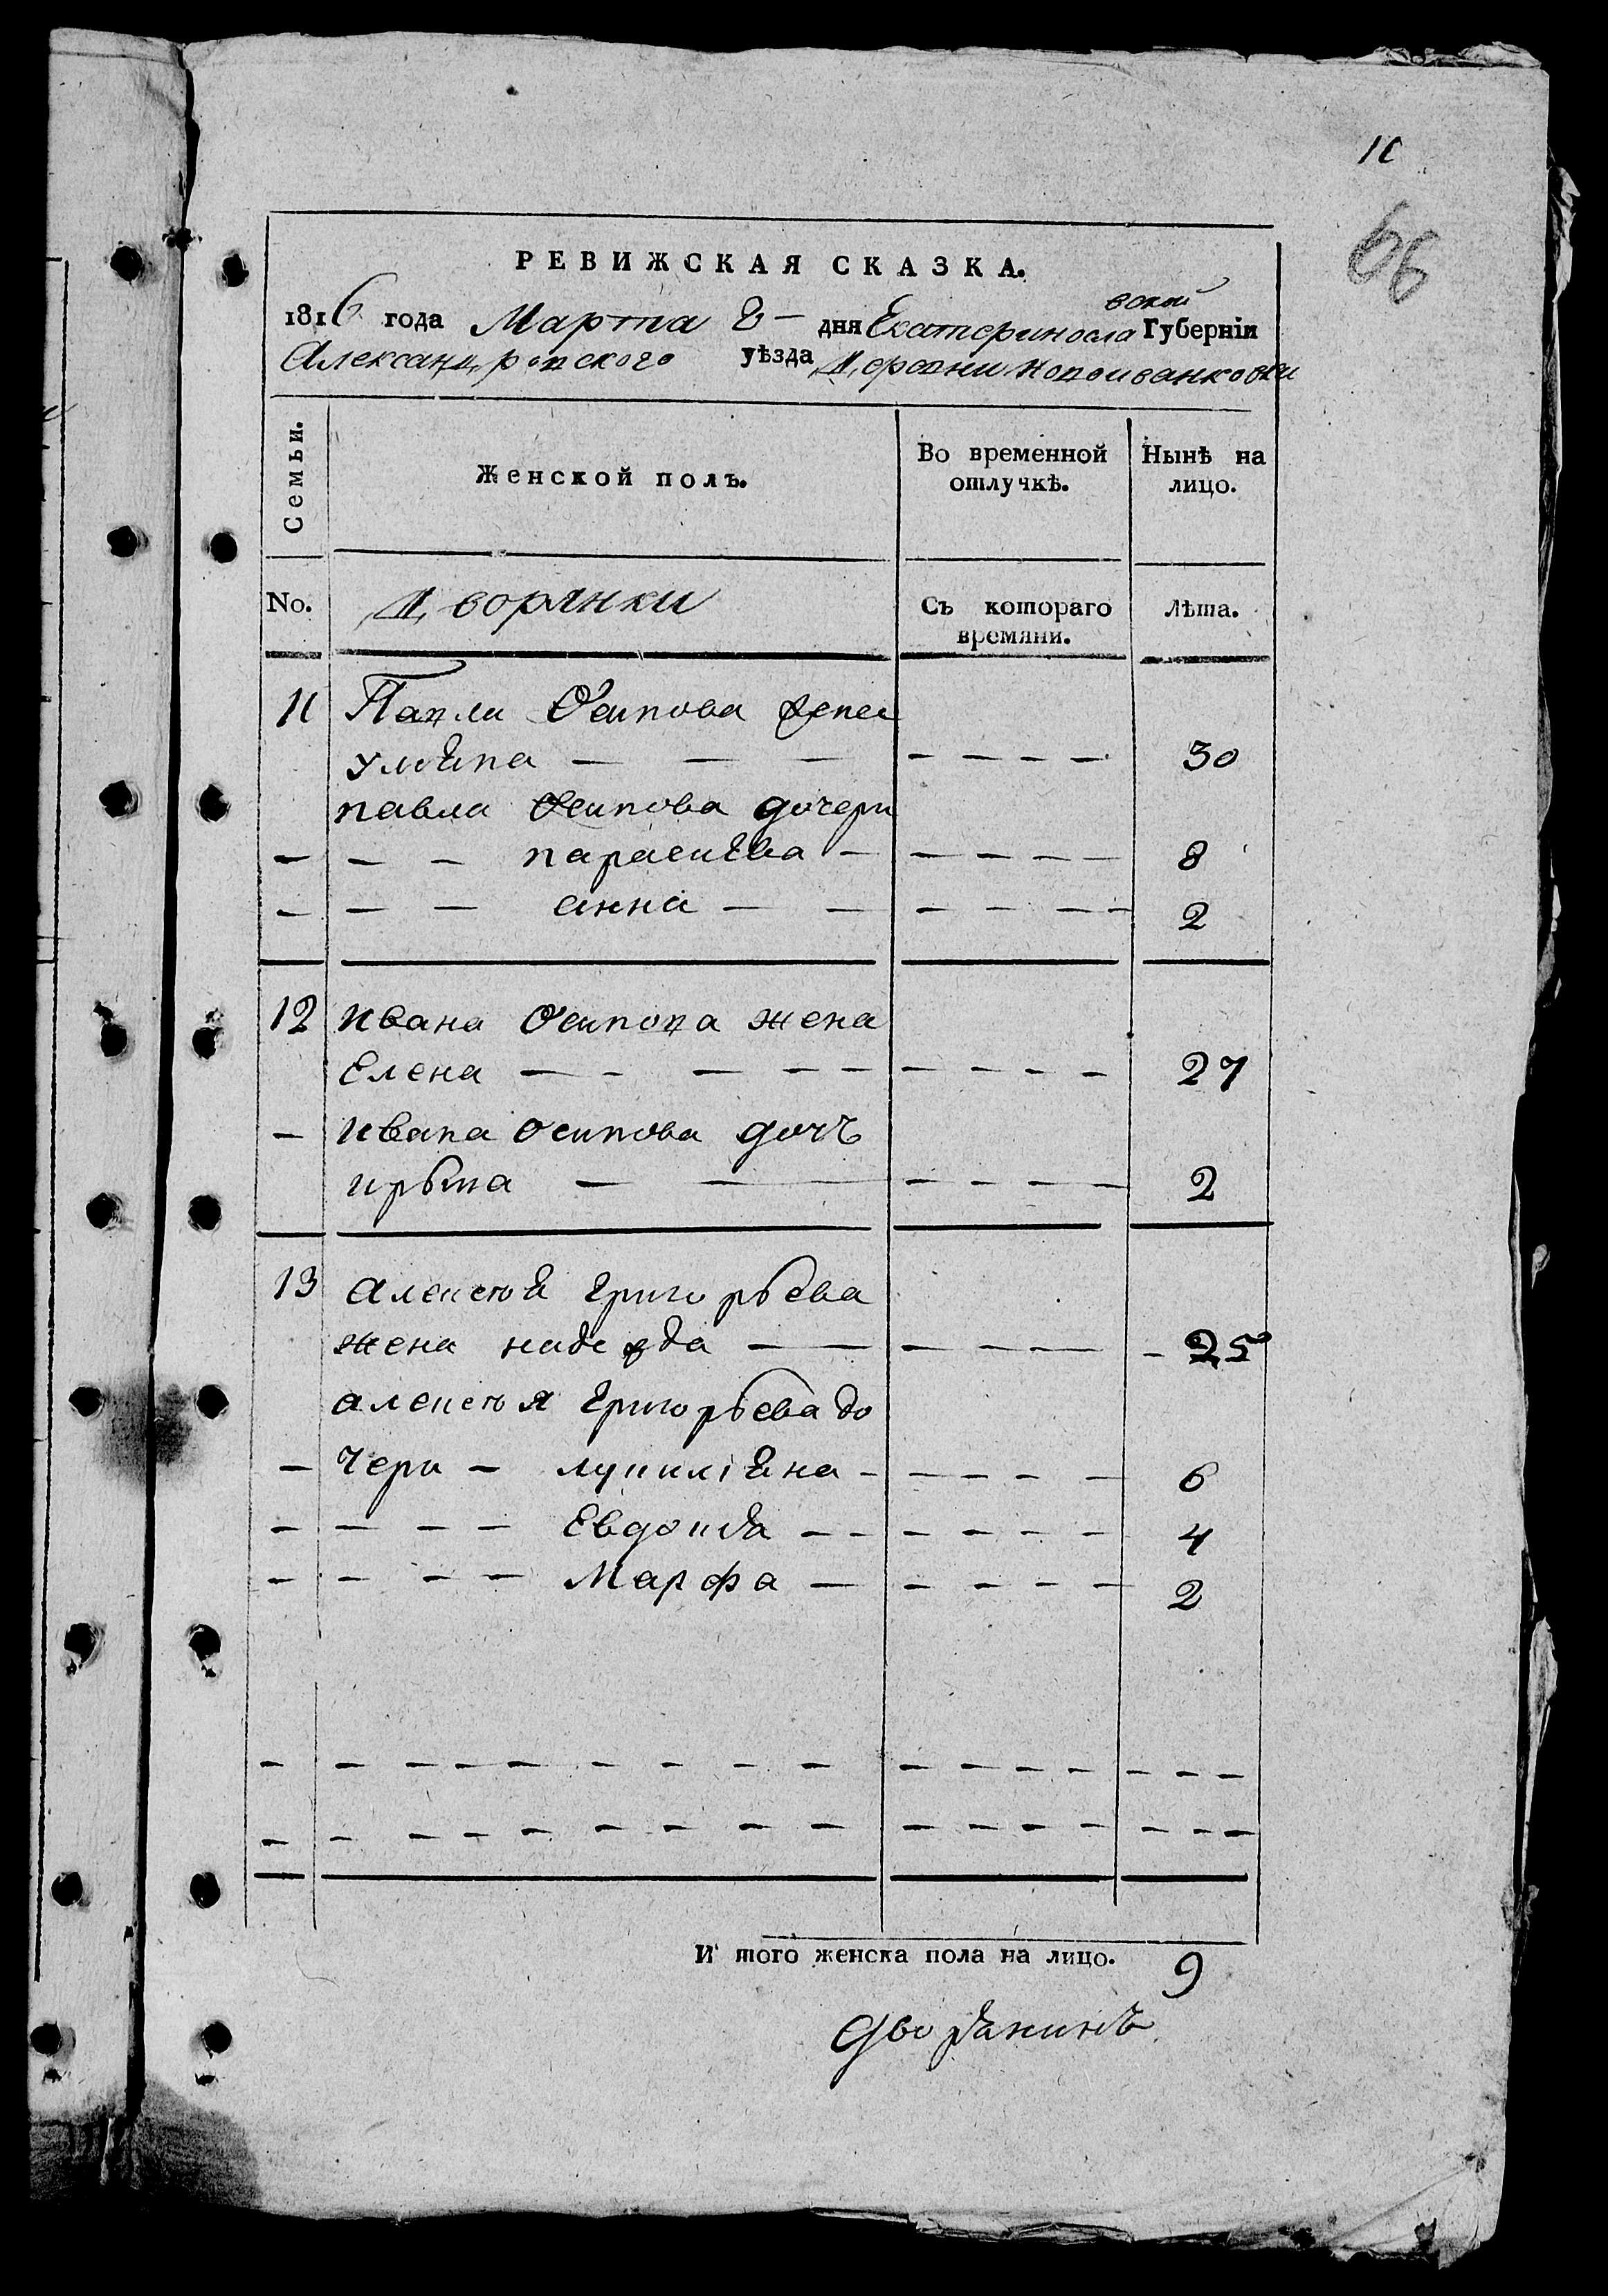 11
66
РЕВИЖСКАЯ СКАЗКА.
1816 года Марта 8 – дня Екатериносла вской Губерніи
Александровского уѣзда Деревни Новоиванковки
Семьи.
Женской полъ.
Во временной отлучкѣ.
Нынѣ на лицо.
No.
Дворянки
Съ котораго времяни.
Лѣта.
11 Павла Осипова жена
улияна — — — — — — — 30
павла Осипова дочери
— — — парасиева — — — — — 8
— — — анна — — — — — — 2
12 Ивана Осипова жена
Елена — — — — — — — — — 27
— Ивана Осипова дочъ
ирына — — — — — — — 2
13 алексея григорьева
жена надежда — — — — — — 25
алексея григорьева до
— чери — лукиліяна — — — — — 6
— — — — Евдокія — — — — — — 4
— — — — Марфа — — — — — 2
И того женска пола на лицо. 9
дворянинъ